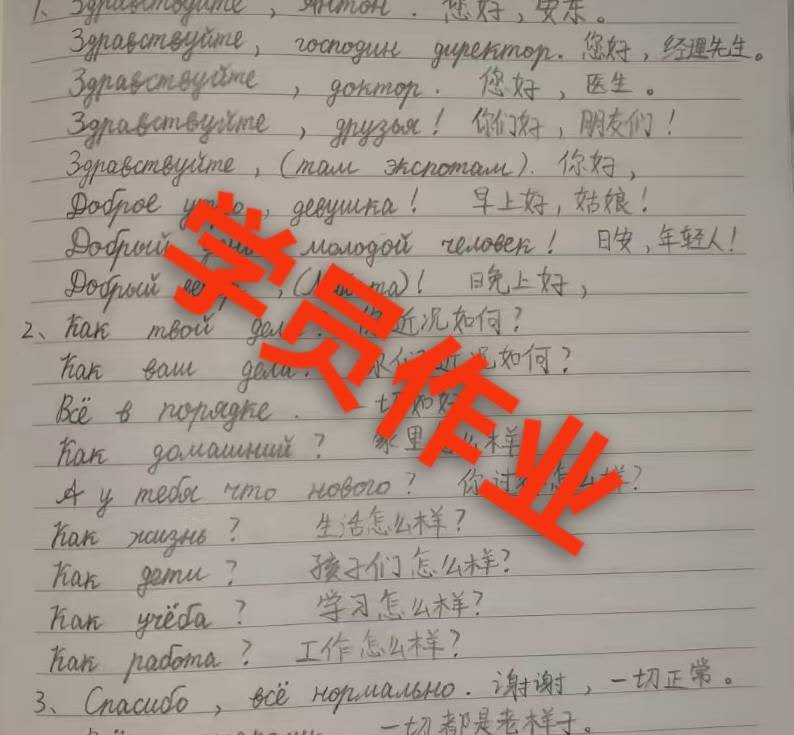 1、Здравствуйте, Антон. 您好，安东。
Здравствуйте, господин директор. 您好，经理先生。
Здравствуйте, доктор. 您好，医生。
Здравствуйте, друзья! 你们好，朋友们！
Здравствуйте, (там экспотам). 你好，
Доброе, девушка! 早上好，姑娘！
Добрый молодой человек! 日安，年轻人！
Добрый, ! 晚上好，
2、Как твой ? 近况如何？
Как ваш дела? 近况如何？
Всё в порядке. 一切如
Как домашний? 家里 么样
А у тебя что нового? 你 怎么样？
Как жизнь? 生活怎么样？
Как дети? 孩子们怎么样？
Как учёба? 学习怎么样？
Как работа? 工作怎么样？
3、Спасибо, всё нормально. 谢谢，一切正常。
一切都是老样子。
学员作业